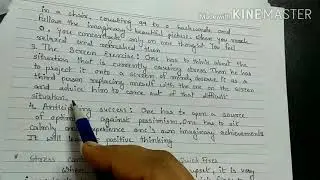 in a chair, counting 99 to backwards and
Made with KINEMASTER
follows the imaginary beautiful picture when you reach
0, you concentrate only on one thought. You feel
relaxed and refreshed then.
3. The Screen Exercise: One has to think about the
situation that is currently causing stress. Then he has
to project it onto a screen of mind's house. It is as a
third person replacing oneself with the one on the screen
and advice him to come out of that difficult
situation.
4. Anticipating success: One has to open a source
of optimism against pessimism. One has to sit
calmly and experience one's own imaginary achievements
It will lead to positive thinking
Stress Quick Fixes
upset, it is very